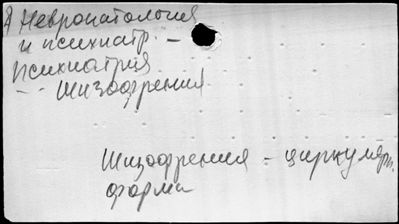 А Невропатология
и психиатр. –
Психиатрия
-- Шизофрения
Шизофрения - циркулярн.
форма